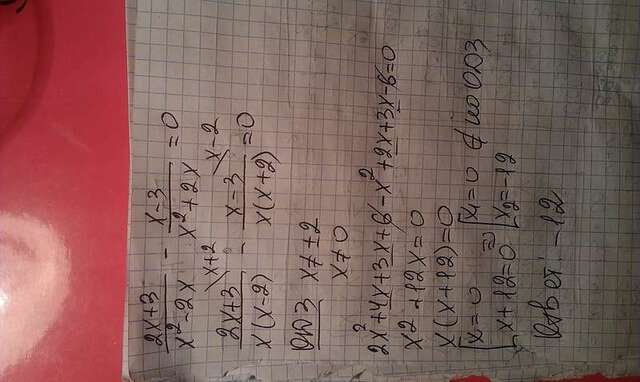 (2x+3)/(x²-2x) - (x-3)/(x²+2x) = 0
(2x+3)/(x(x-2)) \x+2 - (x-3)/(x(x+2)) \x-2 = 0
ОДЗ x≠±2
x≠0
2x²+4x+3x+6-x²+2x+3x-6=0
x²+12x=0
x(x+12)=0
[x=0 ⇒ [x₁=0 ∉ по ОДЗ
[x+12=0 [x₂=-12
Ответ: -12